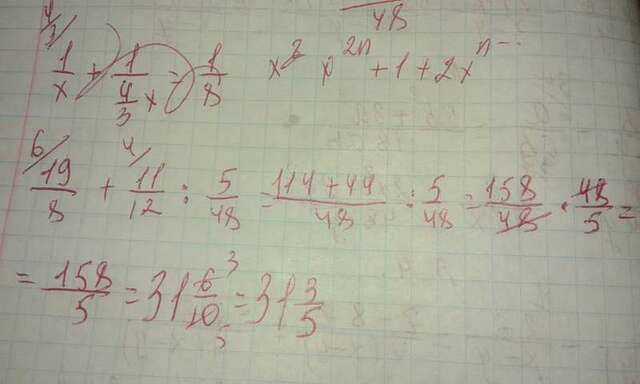 48
4/3/
1/x + 1/(4/3 x) = 1/8 x² x²ⁿ + 1 + 2xⁿ⁻
6/ 4/
19/8 + 11/12 : 5/48 = (114+44)/48 : 5/48 = 158/48 · 48/5 =
= 158/5 = 31 6/10 3 5 = 31 3/5